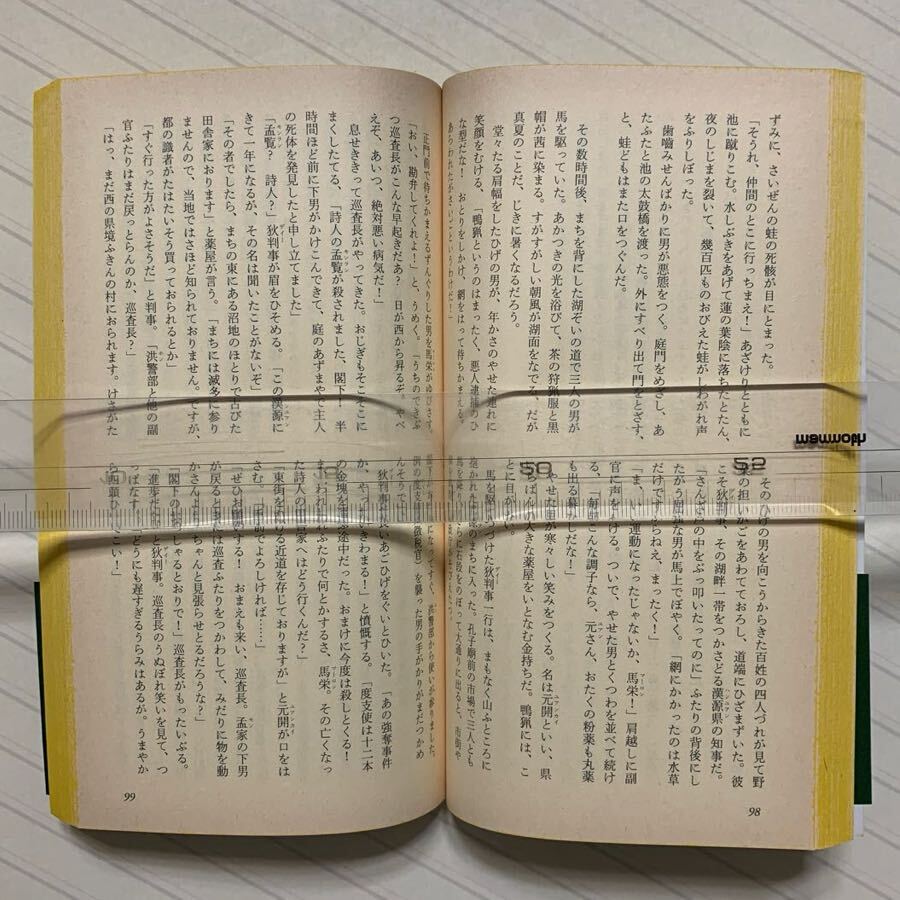 ずみに、さいぜんの蛙の死骸が目にとまった。
「そうれ、仲間のとこに行っちまえ!」あざけりとともに
池に蹴りこむ。水しぶきをあげて蓮の葉陰に落ちたとたん、
夜のしじまを裂いて、幾百匹ものおびえた蛙がしわがれ声
をふりしぼった。
歯嚙みせんばかりに男が悪態をつく。庭門をめざし、あ
たふたと池の太鼓橋を渡った。外にすべり出て門をとざす
と、蛙どもはまた口をつぐんだ。
その数時間後、まちを背にした湖ぞいの道で三人の男が
馬を駆っていた。あかつきの光を浴びて、茶の狩猟服と黒
帽が茜に染まる。すがすがしい朝風が湖面をなでる、だが
真夏のことだ、じきに暑くなるだろう。
堂々たる肩幅をしたひげの男が、年かさのやせた連れに
笑顔をむける、「鴨猟というのはまったく、悪人逮捕のひ
な型だな! おとりをしかけ、網をはって待ちかまえる。
そのひげの男を向こうからきた百姓の四人づれが見て野
菜の担いかごをあわてておろし、道端にひざまずいた。彼
こそ狄判事、その湖畔一帯をつかさどる漢源県の知事だ。
「さんざ水の中をぶっ叩いたってのに」ふたりの背後にし
たがう屈強な男が馬上でぼやく。「網にかかったのは水草
だけですからねえ、まったく!」
「ま、いい運動になったじゃないか、馬栄!」肩越しに副
官に声をかける。ついで、やせた男とくつわを並べて続け
る、「毎朝こんな調子なら、元さん、おたくの粉薬も丸薬
も出る幕なしだな!」
やせた男が寒々しい笑みをつくる。名は元開といい、県
いちばんの大きな薬屋をいとなむ金持ちだ。鴨猟には、こ
とに目がない。
馬を駆りつづけた狄判事一行は、まもなく山ふところに
抱かれた漢源のまちに入った。孔子廟前の市場で三人とも
98
正門前で待ちかまえるずんぐりした男を馬栄がゆびさす。
「おい、勘弁してくれよ!」と、うめく。「うちのできぶ
つ巡査長がこんな早起きだあ? 日が西から昇るぞ。やべ
えぞ、あいつ、絶対悪い病気だ!」
息せききって巡査長がやってきた。おじぎもそこそこに
まくしたてる、「詩人の孟覧が殺されました、閣下! 半
時間ほど前に下男がかけこんできて、庭のあずまやで主人
の死体を発見したと申し立てました」
「孟覧? 詩人?」狄判事が眉をひそめる。「この漢源に
きて一年になるが、その名は聞いたことがないぞ」
「その者でしたら、まちの東にある沼地のほとりで古びた
田舎家におります」と薬屋が言う。「まちには滅多に参り
ませんので、当地ではさほど知られておりません。ですが、
都の識者がたはたいそう買っておられるとか」
「すぐ行った方がよさそうだ」と判事。「洪警部と他の副
官ふたりはまだ戻っとらんのか、巡査長?」
「はっ、まだ西の県境ふきんの村におられます。けさがた
んそうで」
狄判事が長いあごひげをぐいとひいた。「あの強奪事件
か、やっかいきわまる!」と憤慨する。「度支使は十二本
の金塊を運ぶ途中だった。おまけに今度は殺しとくる!
まあ、われわれふたりで何とかするさ、馬栄。その亡くなっ
た詩人の田舎家へはどう行くんだ?」
「東街をぬける近道を存じておりますが」と元開が口をは
さむ。「手前でよろしければ……」
「ぜひお願いする! おまえも来い、巡査長。孟家の下男
が戻るときは巡査ふたりをつかわして、みだりに物を動
かさんよう、ちゃんと見張らせとるだろうな?」
「閣下のおっしゃるとおりで!」巡査長がもったいぶる。
「進歩だな」と狄判事。巡査長のうぬぼれ笑いを見て、つ
っぱなす。「どうにも遅すぎるうらみはあるが。うまやか
ら四頭ひいてこい!」
99
50
52
mawworthy